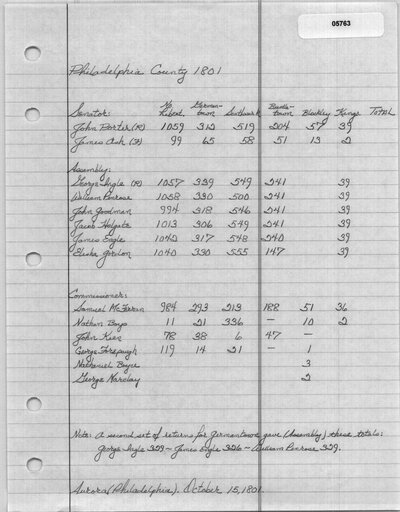 05763
Philadelphia County 1801
No. Liberti German-town Southwark Bustle-town Blockley Kings Total
Senator:
John Porter (R) 1059 312 519 204 57 39
James Ash (F) 99 65 58 51 13 2
Assembly:
George Ingle (R) 1057 339 549 241 39
William Penrose 1058 330 500 241 39
John Goodman 994 318 546 241 39
Jacob Holgate 1013 306 549 241 39
James Engle 1042 317 548 240 39
Elisha Gordon 1040 330 555 147 39
Commissioner:
Samuel McFerran 984 293 213 188 51 36
Nathan Boys 11 21 336 — 10 2
John Keen 78 38 6 47 —
George Forepaugh 119 14 21 — 1
Nathaniel Boyse 3
George Maraday 2
Note: A second set of returns for Germantown gave (Assembly) these totals:
George Ingle 329 ~ James Engle 326 ~ William Penrose 329.
Aurora (Philadelphia). October 15, 1801.